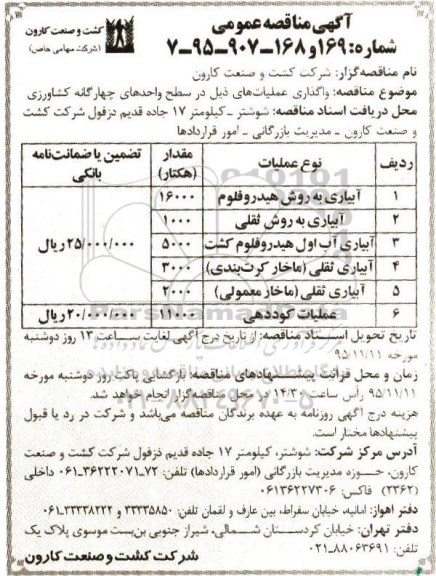 کشت و صنعت کارون
(شرکت سهامی خاص)
آگهی مناقصه عمومی
شماره: ۱۶۹ و ۱۶۸-۹۰۷-۹۵-۷
نام مناقصه‌گزار: شرکت کشت و صنعت کارون
موضوع مناقصه: واگذاری عملیات‌های ذیل در سطح واحدهای چهارگانه کشاورزی
محل دریافت اسناد مناقصه: شوشتر ـ کیلومتر ۱۷ جاده قدیم دزفول شرکت کشت
و صنعت کارون ـ مدیریت بازرگانی ـ امور قراردادها
ردیف نوع عملیات مقدار (هکتار) تضمین یا ضمانت‌نامه بانکی
۱ آبیاری به روش هیدروفلوم ۱۶۰۰۰
۲ آبیاری به روش ثقلی ۱۰۰۰
۳ آبیاری آب اول هیدروفلوم کشت ۵۰۰۰ ۲۵/۰۰۰/۰۰۰ ریال
۴ آبیاری ثقلی (ماخار کرت‌بندی) ۳۰۰۰
۵ آبیاری ثقلی (ماخار معمولی) ۲۰۰۰
۶ عملیات کوددهی ۱۱۰۰۰ ۲۰/۰۰۰/۰۰۰ ریال
تاریخ تحویل اسناد مناقصه: از تاریخ درج آگهی لغایت ساعت ۱۳ روز دوشنبه
مورخه ۹۵/۱۱/۱۱
زمان و محل قرائت پیشنهادهای مناقصه: بازگشایی پاکت روز دوشنبه مورخه
۹۵/۱۱/۱۸ رأس ساعت ۱۴:۳۰ در محل مناقصه‌گزار انجام خواهد شد.
هزینه درج آگهی روزنامه به عهده برندگان مناقصه می‌باشد و شرکت در رد یا قبول
پیشنهادها مختار است.
آدرس مرکز شرکت: شوشتر، کیلومتر ۱۷ جاده قدیم دزفول شرکت کشت و صنعت
کارون، حوزه مدیریت بازرگانی (امور قراردادها) تلفن: ۷۲-۳۶۲۲۲۰۷۱-۰۶۱ داخلی
(۲۳۶۲) فاکس: ۰۶۱۳۶۲۲۷۳۰۶
دفتر اهواز: امانیه، خیابان سقراط، بین عارف و لقمان تلفن: ۳۳۳۳۵۸۵۰ و ۳۳۳۳۸۲۲۲-۰۶۱
دفتر تهران: خیابان کردستان شمالی، شیراز جنوبی بن‌بست موسوی پلاک یک
تلفن: ۸۸۰۶۳۶۹۱-۰۲۱
شرکت کشت و صنعت کارون